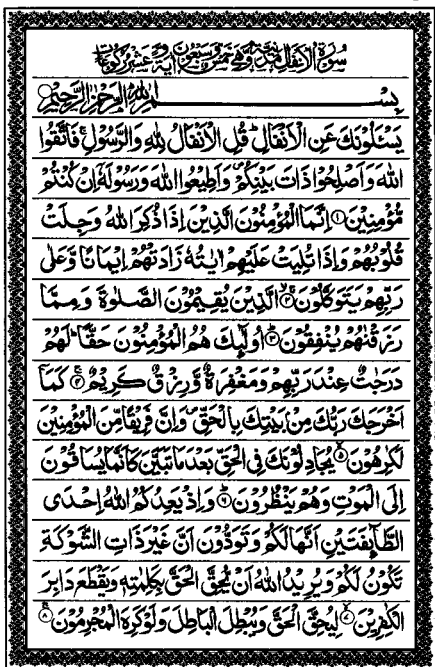 سُوْرَةُ الْاَنْفَالِ مَدَنِيَّةٌ وَّهِيَ خَمْسٌ وَّسَبْعُوْنَ اٰيَةً وَّعَشْرُ رُكُوْعَاتٍ
بِسْمِ اللّٰهِ الرَّحْمٰنِ الرَّحِيْمِ
يَسْـَٔلُوْنَكَ عَنِ الْاَنْفَالِ ؕ قُلِ الْاَنْفَالُ لِلّٰهِ وَالرَّسُوْلِ ۚ فَاتَّقُوا
اللّٰهَ وَاَصْلِحُوْا ذَاتَ بَيْنِكُمْ ۪ وَاَطِيْعُوا اللّٰهَ وَرَسُوْلَهٗۤ اِنْ كُنْتُمْ
مُّؤْمِنِيْنَ ۝۱ اِنَّمَا الْمُؤْمِنُوْنَ الَّذِيْنَ اِذَا ذُكِرَ اللّٰهُ وَجِلَتْ
قُلُوْبُهُمْ وَاِذَا تُلِيَتْ عَلَيْهِمْ اٰيٰتُهٗ زَادَتْهُمْ اِيْمَانًا وَّعَلٰى
رَبِّهِمْ يَتَوَكَّلُوْنَ ۝۲ الَّذِيْنَ يُقِيْمُوْنَ الصَّلٰوةَ وَمِمَّا
رَزَقْنٰهُمْ يُنْفِقُوْنَ ۝۳ اُولٰٓئِكَ هُمُ الْمُؤْمِنُوْنَ حَقًّا ؕ لَهُمْ
دَرَجٰتٌ عِنْدَ رَبِّهِمْ وَمَغْفِرَةٌ وَّرِزْقٌ كَرِيْمٌ ۝۴ كَمَاۤ
اَخْرَجَكَ رَبُّكَ مِنْۢ بَيْتِكَ بِالْحَقِّ ۪ وَاِنَّ فَرِيْقًا مِّنَ الْمُؤْمِنِيْنَ
لَكٰرِهُوْنَ ۝۵ يُجَادِلُوْنَكَ فِى الْحَقِّ بَعْدَ مَا تَبَيَّنَ كَاَنَّمَا يُسَاقُوْنَ
اِلَى الْمَوْتِ وَهُمْ يَنْظُرُوْنَ ۝۶ وَاِذْ يَعِدُكُمُ اللّٰهُ اِحْدَى
الطَّآئِفَتَيْنِ اَنَّهَا لَكُمْ وَتَوَدُّوْنَ اَنَّ غَيْرَ ذَاتِ الشَّوْكَةِ
تَكُوْنُ لَكُمْ وَيُرِيْدُ اللّٰهُ اَنْ يُّحِقَّ الْحَقَّ بِكَلِمٰتِهٖ وَيَقْطَعَ دَابِرَ
الْكٰفِرِيْنَ ۝۷ لِيُحِقَّ الْحَقَّ وَيُبْطِلَ الْبَاطِلَ وَلَوْ كَرِهَ الْمُجْرِمُوْنَ ۝۸